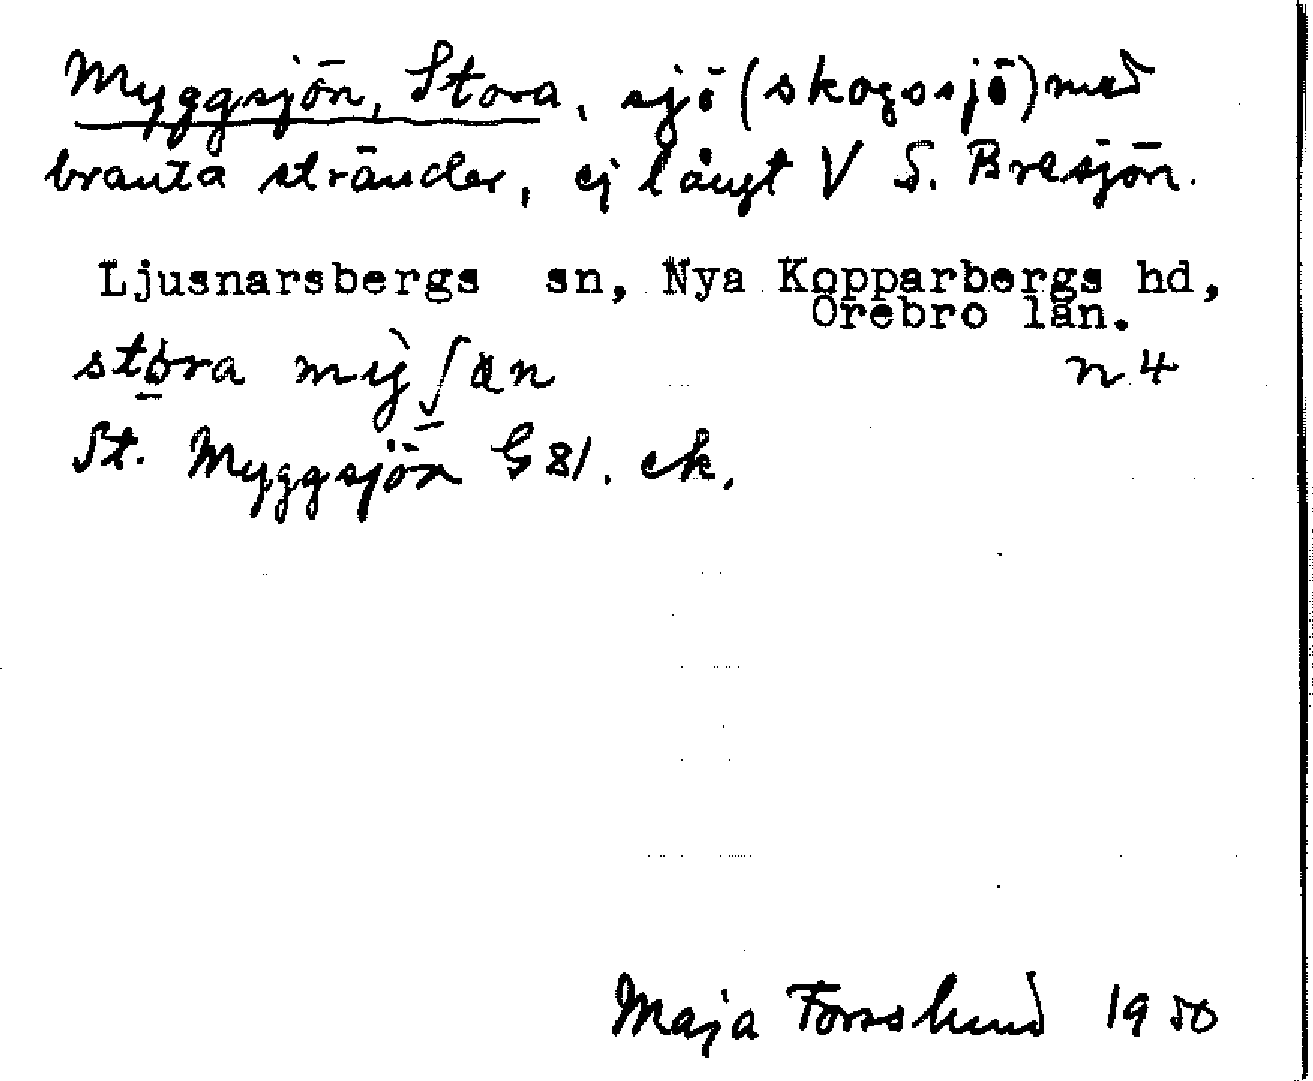 Myggsjön, Stora, sjö (skogssjö) med
branta stränder, ej långt V S. Bresjön.
Ljusnarsbergs sn, Nya Kopparbergs hd,
Örebro län.
stora myʃan n 4
St. Myggsjön G 81. ek.
Maja Forsslund 1950